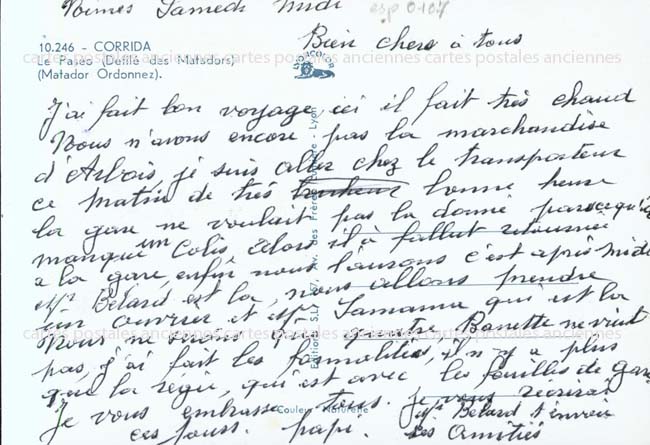 Nimes Samedi midi
esp 0107
10.246 - CORRIDA
Le Paseo (Défilé des Matadors)
(Matador Ordonnez).
Bien chers à tous
cartes postales anciennes cartes postales anciennes cartes postales anciennes
J'ai fait bon voyage, ici il fait très chaud
Nous n'avons encore pas la marchandise
d'Arbois, je suis aller chez le transporteur
ce matin de très bonne heure
la gare ne voulait pas la donné parcequ'il
manqué un Colis Alors il a fallut retourner
a la gare, enfin nous l'aurons c'est après midi
et Mr Belard est la, nous allons prendre
un ouvrier et Mr Samama qui est la
cartes postales anciennes cartes postales anciennes cartes postales anciennes
Nous ne avons que Banette ne vient
pas, j'ai fait les formalités, il n'y a plus
que la régie, qui est avec les feuilles de gare
Je vous embrasse tous. je vous écrirai
ces jours. papi. Mr Belard t'envoie
Ses Amitiés
Couleur Naturelle
Editions S.L. 67, Av. des Frères Lumière - Lyon